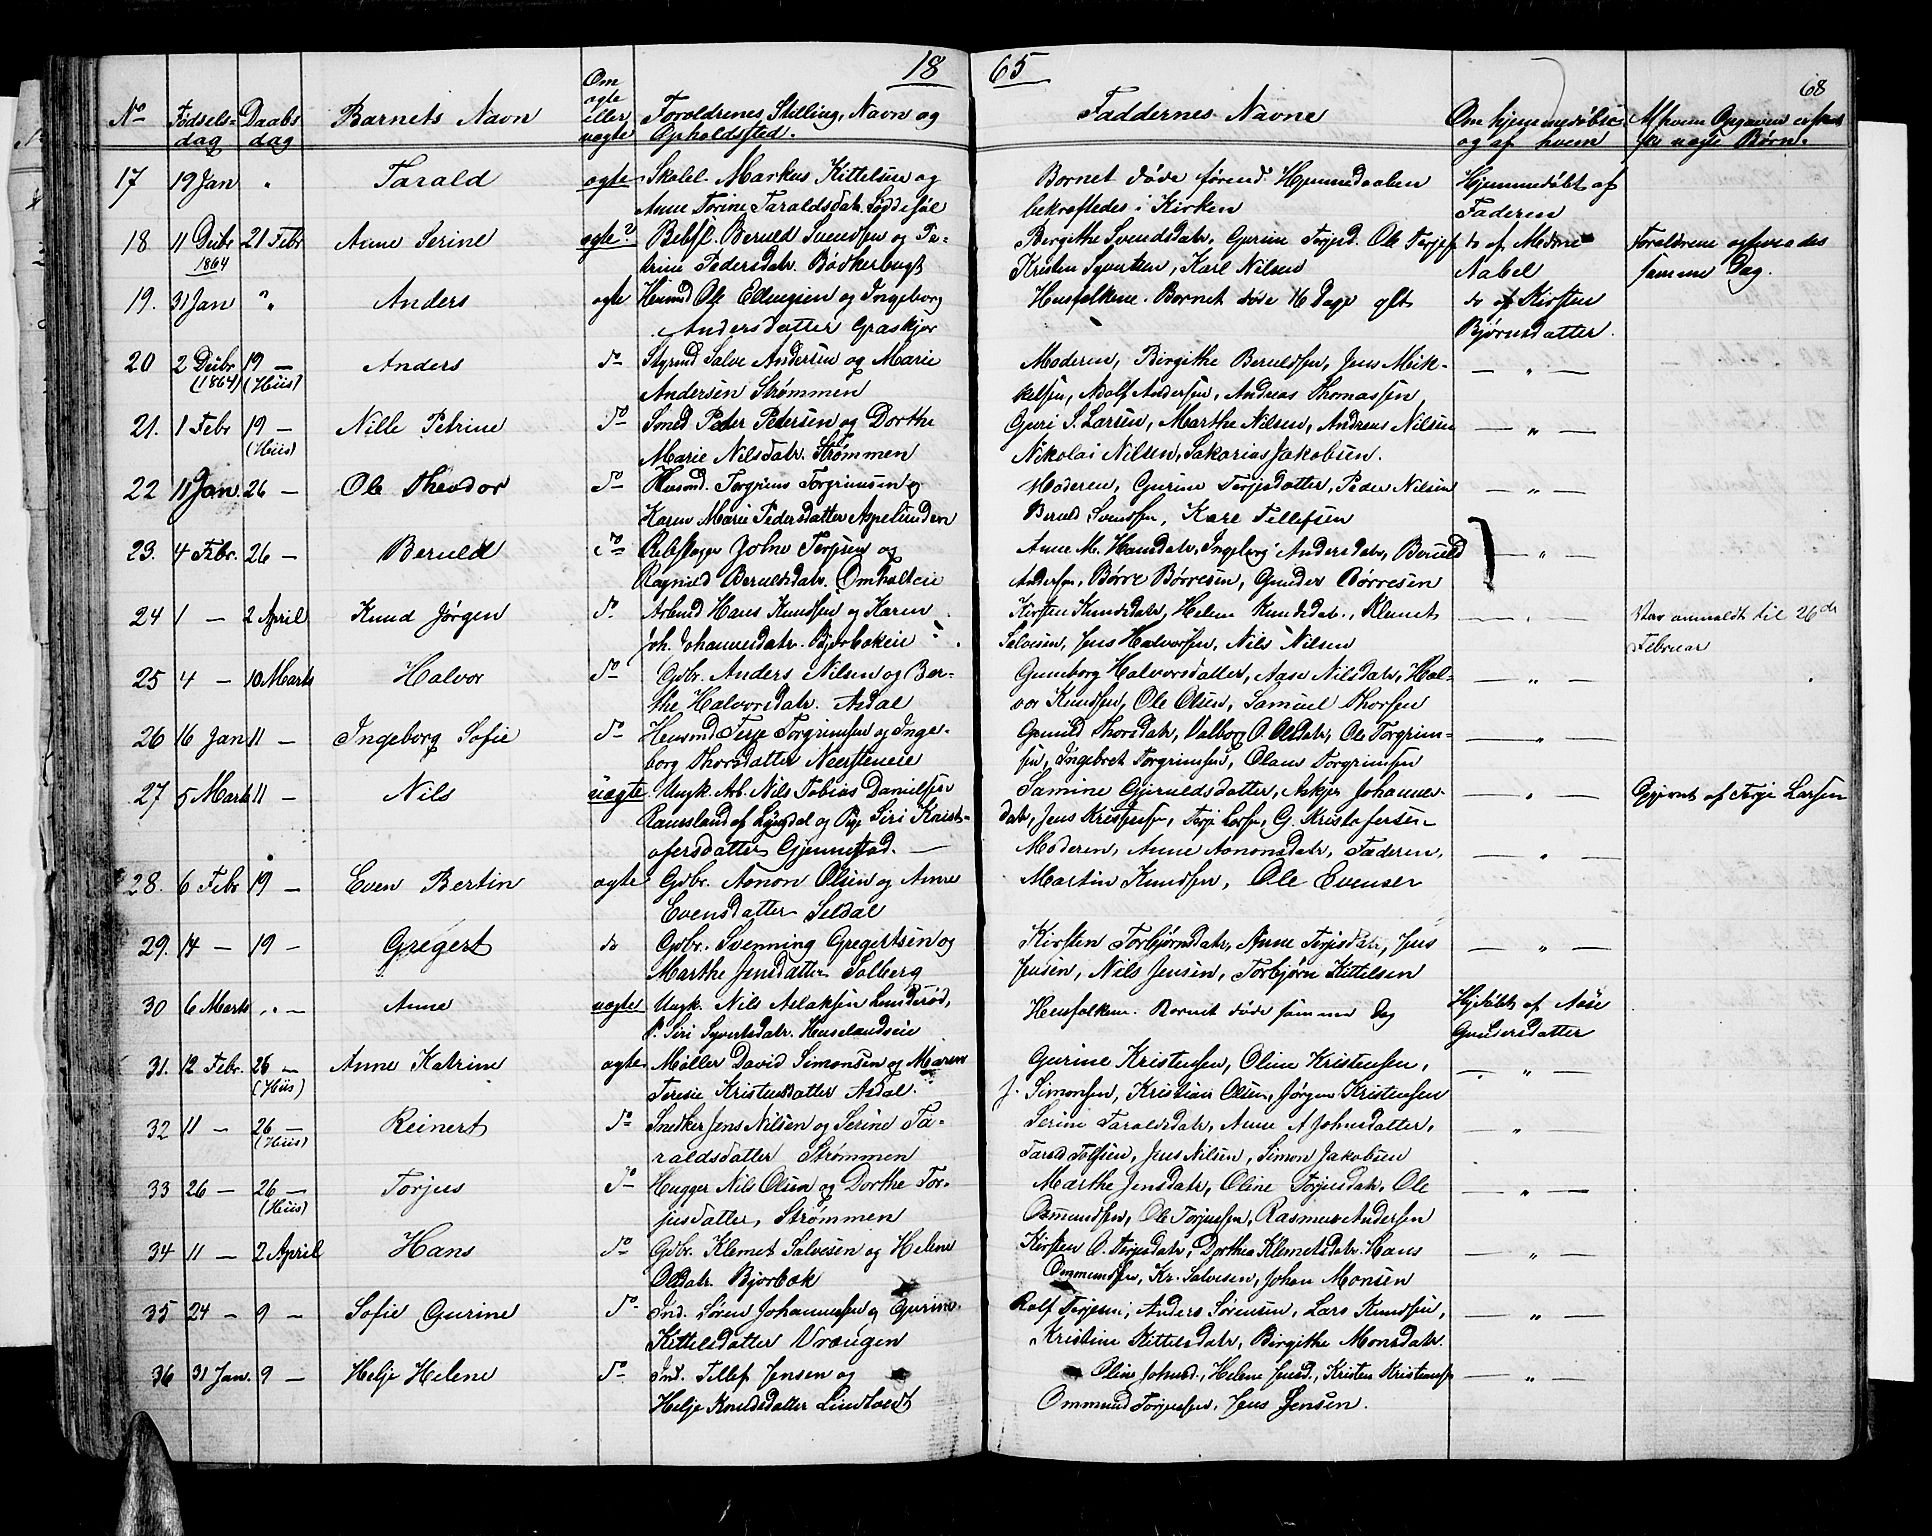 18 65
68
No Fødsels- Daabs Barnets Navn Om Forældrenes Stilling, Navn og Faddernes Navne Om hjemmedøbt Af hvem Opgaven er
dag dag ægte eller uægte Opholdsted. og af hvem for uægte Børn.
17 19 Jan " Tarald ægte Markus Kittelsen og Barnet døde førend Hjemmedaaben Hjemmedøbt af
Anne Torine Taraldsdatr. bekræftedes i Kirken Faderen
18 11 Debr 21 Febr Anne Serine ægte? Beruld Svendsen og Pe- Birgithe Svendsdatr, Gurine Torjsd. Ole Torjes do af Madme Forældrene
1864 trine Pedersdatr. Bødkerbugt Kristen Syvertsen, Karl Nilsen Nabel samme Dag.
19. 31 Jan " Anders ægte Husmd Ole Ellingsen og Ingeborg Husfolkene. Barnet døde 16 Dage glt do af Kirsten
Andersdatter Græskjør Bjørnsdatter.
20 2 Debr 19 — Anders do Salve Andersen og Marie Moderen, Birgithe Beruldsen, Jens Mik- — " —
(1864) (Hiis) Andersen Strømmen kelsen, Adolf Andersen, Andreas Thomassen
21. 1 Febr 19 — Nille Petrine do Smed Peder Pedersen og Dorthe Guri S. Larsen, Marthe Nilsen, Andreas Nilsen — " —
(Hiis) Marie Nilsdatr. Strømmen Nikolai Nilsen, Sakarias Jakobsen.
22 11 Jan. 26 — Ole Theodor do Husmd. Torgrim Torgrimsen og Moderen, Gurine Terjesdatter, Peder Nilsen — " —
Karen Marie Pedersdatter Beruld Svendsen, Karl Tellefsen
23. 4 Febr. 26 — Beruld do Rebslager John Terjesen og Anne M. Hansdatr, Ingeborg Andersdatr, Beruld — " —
Ragnild Beruldsdatr. Omholteie Andersen, Børre Børresen, Gunder Børresen
24 1 — 2 April Knud Jørgen do Arbmd Hans Knudsen og Karen Kirsten Knudsdatr, Helene Knudsdatr., Klemet — " — Var anmeldt til 26de
Joh. Johannesdatr. Bjorbækeie Salvesen, Jens Halvorsen, Nils Nilsen Februar
25 4 — 10 Marts Halvor do Gdbr. Anders Nilsen og Ber- Gunborg Halvorsdatter, Aase Nilsdatr, Hal- — " —
the Halvorsdatr. Asdal vor Knudsen, Ole Olsen, Samuel Thorsen
26 16 Jan 11 — Ingeborg Sofie do Husmd Terje Torgrimsen og Inge- Gunild Thorsdatr, Valborg O. Olsdatr, Ole Torgrim- — " —
borg Thorsdatter Neersteneie sen, Ingebret Torgrimsen, Olaus Torgrimsen
27 5 Marts 11 — Nils uægte Ungk. Arb. Nils Tobias Danielsen Samine Gjeruldsdatter, Askjer Johannes- — " — Opgivet af Terje Larsen
Ramsland af Lyngdal og Pige Siri Krist- datr, Jens Kristensen, Terje Larsen, G. Kristofersen
ofersdatter Gjennestad. — Moderen, Anne Aanonsdatr, Faderen, — " —
28. 6 Febr 19 — Even Bertin ægte Gdbr. Aanon Olsen og Anne Martin Knudsen, Ole Evensen
Evensdatter Seldal
29. 14 — 19 — Gregert do Gdbr. Svenning Gregertsen og Kirsten Torbjørnsdatr, Anne Terjesdatr, Jens — " —
Marthe Jensdatter Solberg Jensen, Nils Jensen, Torbjørn Kittelsen
30 6 Marts " — Anne uægte Ungk. Nils Aslaksen Lunderød, Husfolkene. Barnet døde samme Dag Hjdøbt af Aase
P. Siri Syvertsdatr. Huselandseie Gundersdatter
31. 12 Febr. 26 — Anne Katrine ægte Møller David Simonsen og Maren Gurine Kristensen, Oline Kristensen, — " —
(Hiis) Teresie Kristensdatter Asdal. J. Simonsen, Kristian Olsen, Jørgen Kristensen
32 11 — 26 — Reinert do Snedker Jens Nilsen og Serine Ta- Serine Taraldsdatr, Anne A Johnsdatter, — " —
(Hiis) raldsdatter Strømmen Tarald Jens Nilsen, Simon Jakobsen
33 26 — 26 — Torjus do Hugger Nils Olsen og Dorthe Tor- Marthe Jensdatr, Oline Torjusdatr. Ole — " —
(Hiis) jusdatter, Strømmen Osmundsen, Ole Torjussen, Rasmus Andersen
34 11 — 2 April Hans do Gdbr. Klemet Salvesen og Helene Kirsten O. Terjesdatr, Dorthea Klemetsdatr. Hans — " —
Olsdatr. Bjorbæk Ommundsen, Kr. Salvesen, Johan Monsen
35 24 — 9 — Sofie Gurine do Ind. Søren Johannesen og Gurine Rolf Terjesen, Anders Sørensen, Lars Knudsen, — " —
Kittelsdatter Vrængen Kristine Kittelsdatr, Birgithe Monsdatr.
36 31 Jan. 9 — Helje Helene do Ind. Tellef Jensen og Oline Johnsd., Helene Jensd., Kristen Kristensen — " —
Helje Knudsdatter Lindtveit Ommund Torjussen, Jens Jensen.